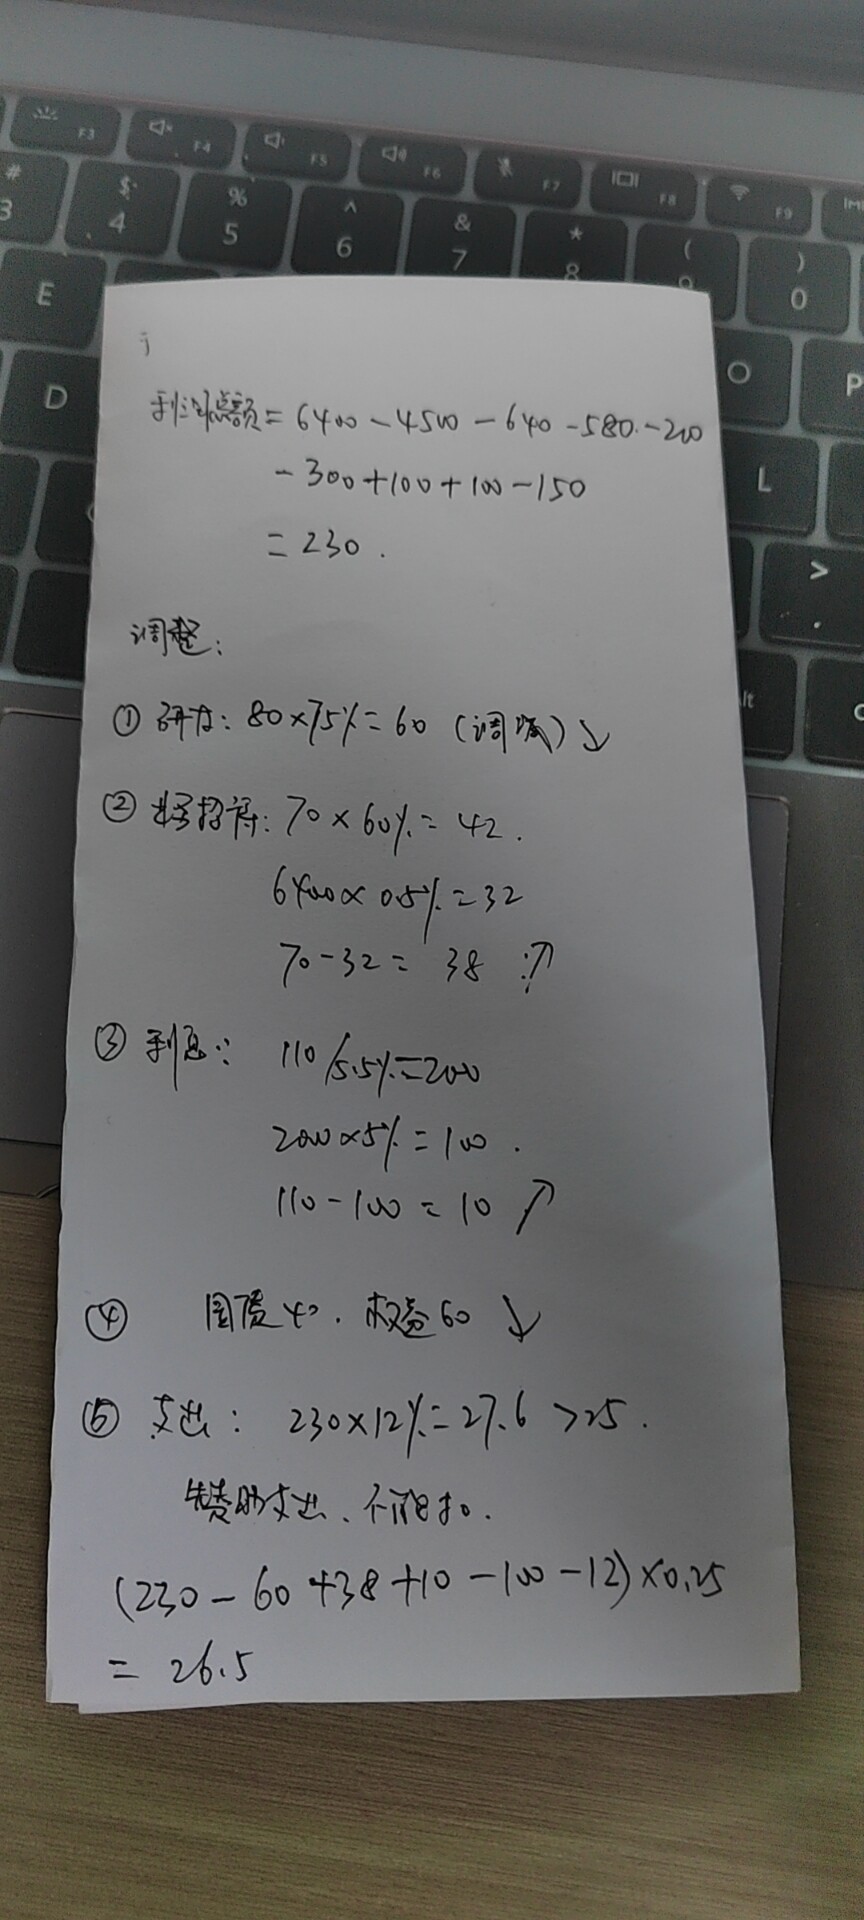 F3 F4 F5 F6 F7 F8 F9
# $ % ^ & * ( )
3 4 5 6 7 8 9 0
E O P
D L
> .
利润总额 = 6400 - 4500 - 640 - 580 - 200
- 300 + 100 + 100 - 150
= 230 .
调整:
① 研发: 80 × 75% = 60 (调减) ↓
② 业务招待: 70 × 60% = 42 .
6400 × 0.5% = 32
70 - 32 = 38 ↗
③ 利息: 110 / 5.5% = 2000
2000 × 5% = 100 .
110 - 100 = 10 ↗
④ 国债 40 . 权益 60 ↓
⑤ 支出: 230 × 12% = 27.6 > 25 .
赞助支出、不能扣.
(230 - 60 + 38 + 10 - 100 - 12) × 0.25
= 26.5